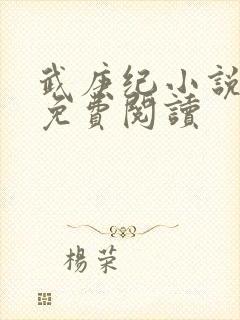 武庚纪小説
免費閱讀
楊荣